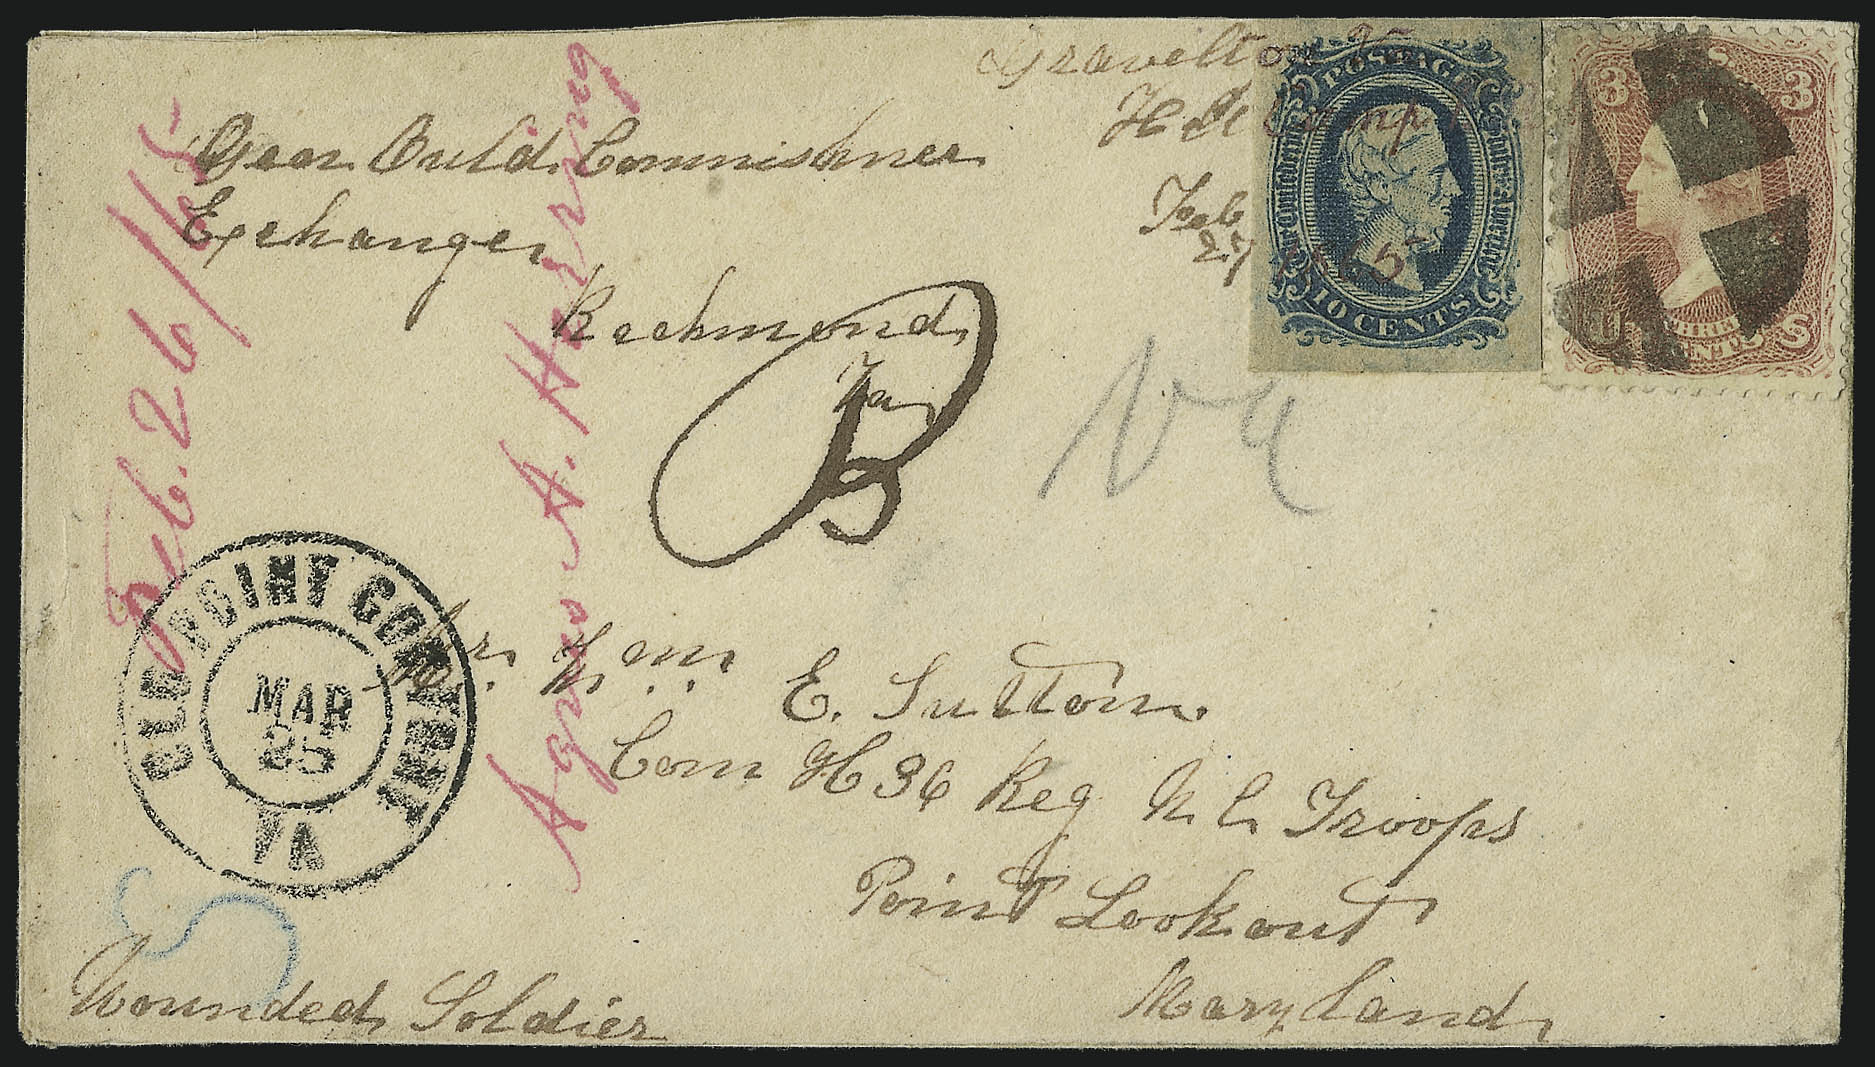 Gravelton
H
Feb
27 1865
Genr. Ould. Commishner
Exchange,
Richmond,
Va,
B
Va
Feb. 26/65
Agnes A. Herring
POSTAGE
The Confederate States of America
10 CENTS
3 U S 3
THREE
CENTS
OLD POINT COMFORT
MAR
25
VA
Mr. Wm. E. Sutton.
Com H 36 Reg N. C. Troops
Point Lookout
Maryland,
Wounded, Soldier